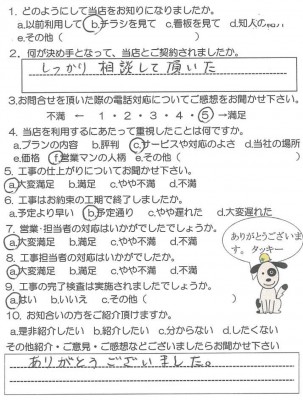 1. どのようにして当店をお知りになりましたか。
a.以前利用して b.チラシを見て c.看板を見て d.知人の紹介
e.その他(
2. 何が決め手となって、当店とご契約されましたか。
しっかり相談して頂いた
3.お問合せを頂いた際の電話対応についてご感想をお聞かせ下さい。
不満 ← 1・2・3・4・5 →満足
4. 当店を利用するにあたって重視したことは何ですか。
a.プランの内容 b.評判 c.サービスや対応のよさ d.当社の場所
e.価格 f.営業マンの人柄 e.その他(
5. 工事の仕上がりについてお聞かせ下さい。
a.大変満足 b.満足 c.やや不満 d.不満
6. 工事はお約束の工期で終了しましたか。
a.予定より早い b.予定通り c.やや遅れた d.大変遅れた
7. 営業・担当者の対応はいかがでしたでしょうか。
a.大変満足 b.満足 c.やや不満 d.不満
8. 工事担当者の対応はいかがでしたか。
a.大変満足 b.満足 c.やや不満 d.不満
ありがとうございま
す。タッキー
9. 工事の完了検査は実施されましたでしょうか。
a.はい b.いいえ c.その他(
10. お知合いの方をご紹介頂けますか。
a.是非紹介したい b.紹介したい c.分からない d.したくない
その他紹介・ご意見・ご感想などございましたらお聞かせ下さい
ありがとうございました。